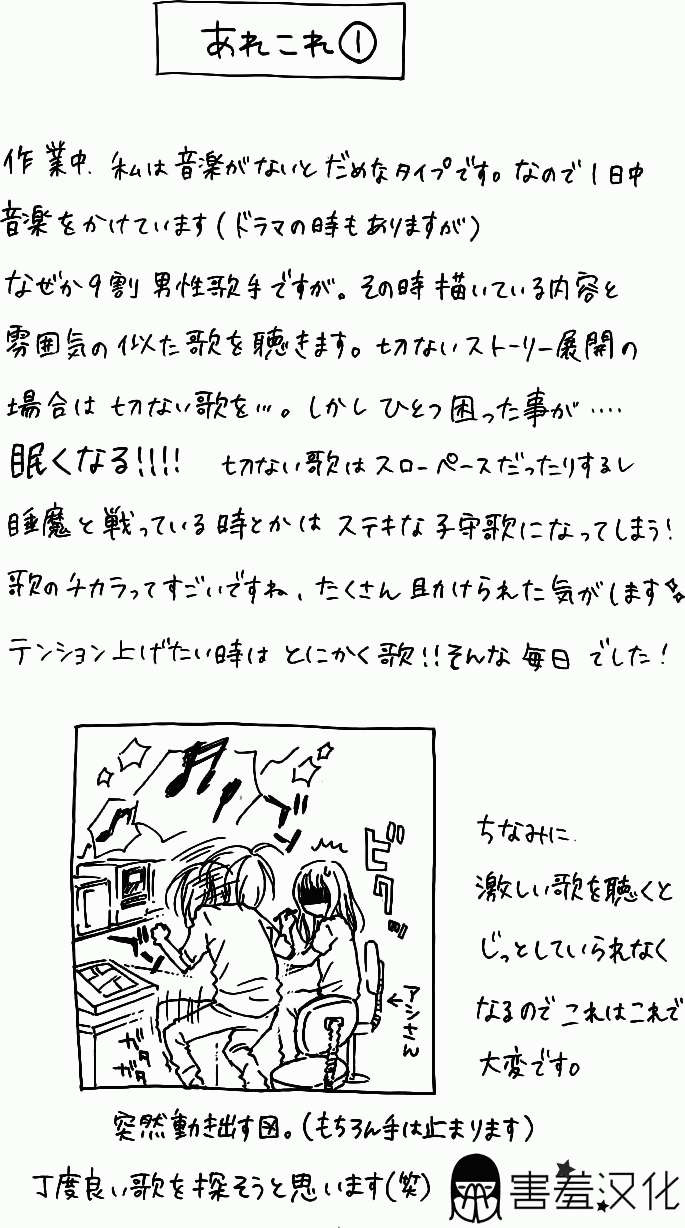 あれこれ①
作業中、私は音楽がないとだめなタイプです。なので1日中
音楽をかけています(ドラマの時もありますが)
なぜか9割男性歌手ですが。その時描いている内容と
雰囲気の似た歌を聴きます。切ないストーリー展開の
場合は切ない歌を…。しかしひとつ困った事が‥‥
眠くなる!!!! 切ない歌はスローペースだったりするし
睡魔と戦っている時とかはステキな子守歌になってしまう!
歌のチカラってすごいですね、たくさん助けられた気がします
テンション上げたい時はとにかく歌!!そんな毎日でした!
ビクッ
ガタガタ
←アシさん
ちなみに、
激しい歌を聴くと
じっとしていられなく
なるのでこれはこれで
大変です。
突然動き出す図。(もちろん手は止まります)
丁度良い歌を探そうと思います(笑)
害羞汉化